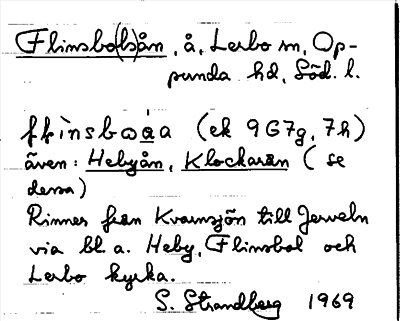 Flinsbo(ls)ån, å, Lerbo sn, Op-
punda hd, Söd. l.
flìnsbωåa (ek 9G7g, 7h)
även: Hebyån, Klockarån (se
dessa)
Rinner från Kvarnsjön till Jerveln
via bl. a. Heby, Flinsbol och
Lerbo kyrka.
S. Strandberg 1969